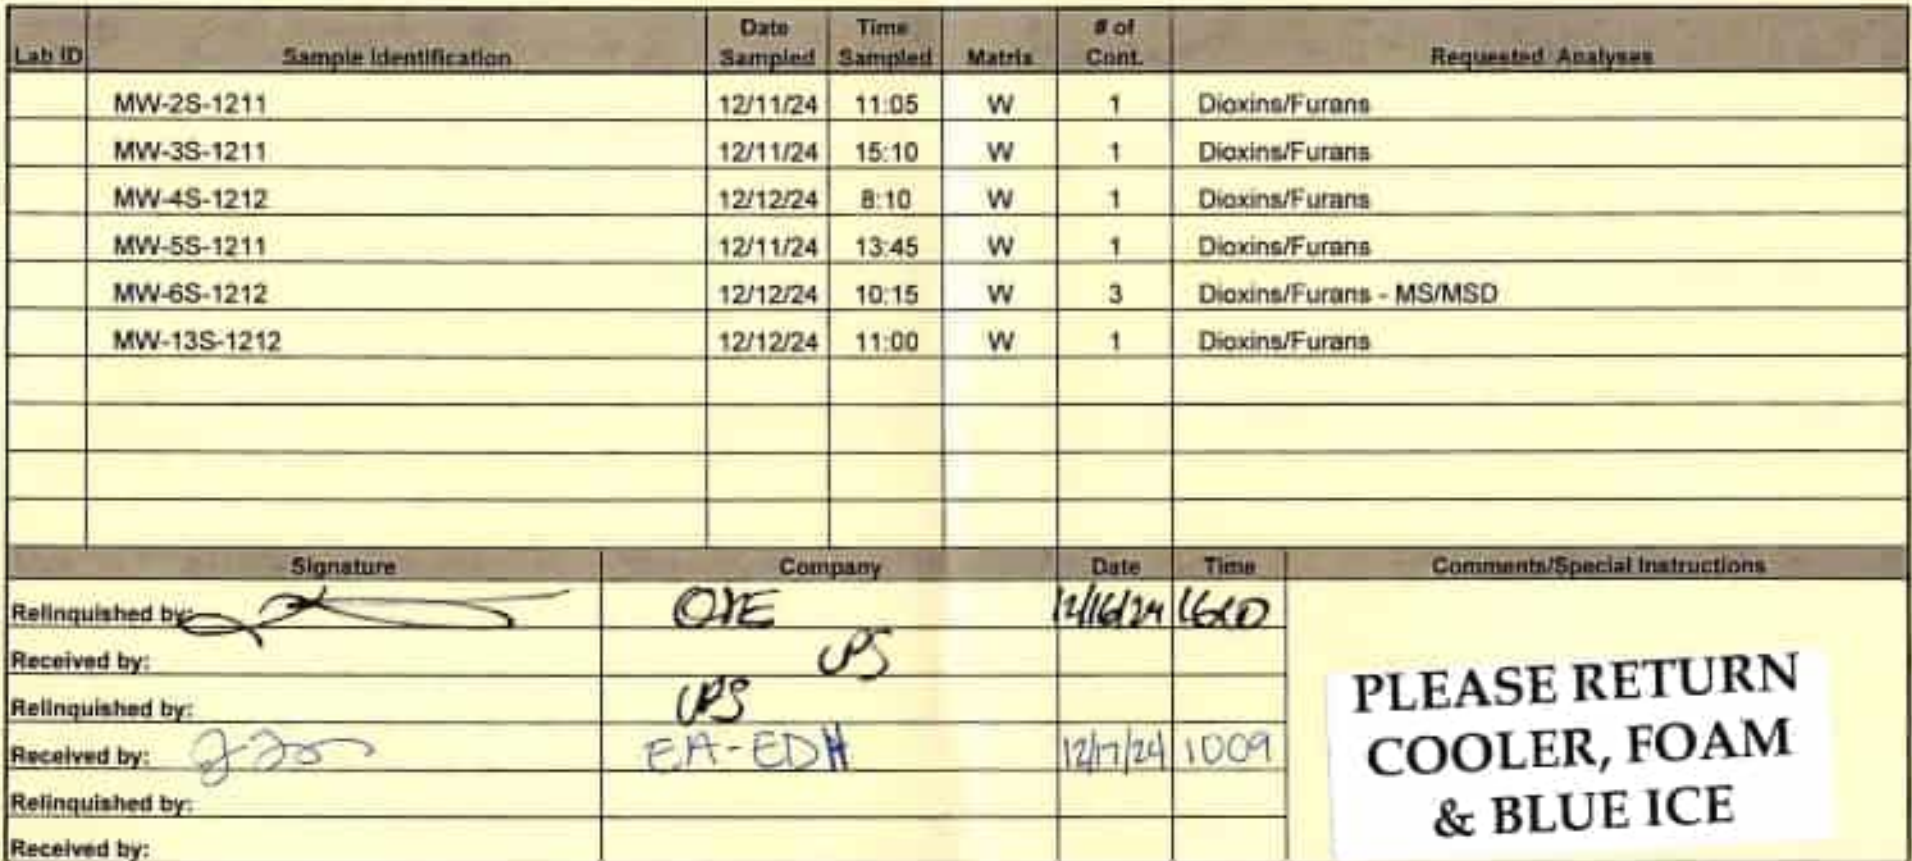 Lab ID Sample Identification Date Sampled Time Sampled Matrix # of Cont. Requested Analyses
MW-2S-1211 12/11/24 11:05 W 1 Dioxins/Furans
MW-3S-1211 12/11/24 15:10 W 1 Dioxins/Furans
MW-4S-1212 12/12/24 8:10 W 1 Dioxins/Furans
MW-5S-1211 12/11/24 13:45 W 1 Dioxins/Furans
MW-6S-1212 12/12/24 10:15 W 3 Dioxins/Furans - MS/MSD
MW-13S-1212 12/12/24 11:00 W 1 Dioxins/Furans
Signature Company Date Time Comments/Special Instructions
Relinquished by: 12/16/24
Received by: UPS
Relinquished by: UPS
Received by: EA-EDH 12/17/24 1009
Relinquished by:
Received by:
PLEASE RETURN
COOLER, FOAM
& BLUE ICE